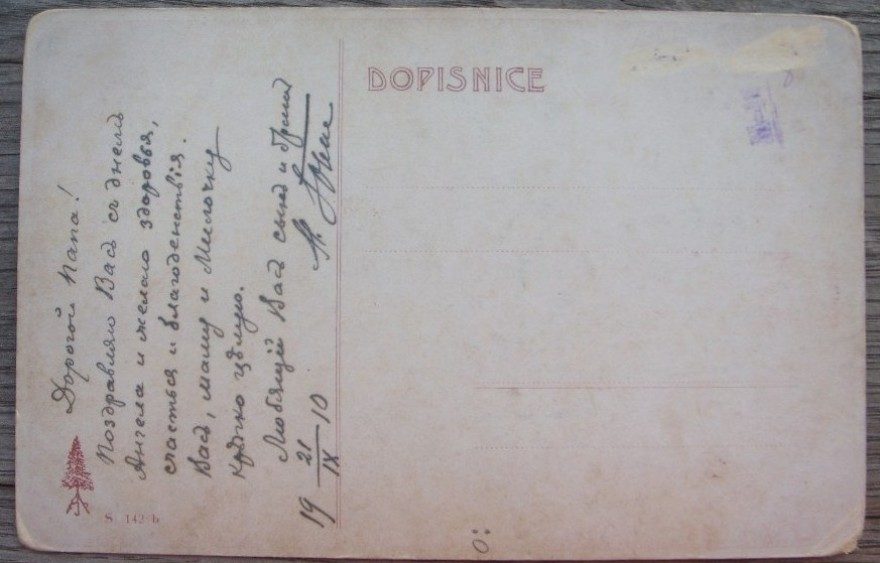 DOPISNICE
Дорогой папа!
Поздравляю Васъ съ днемъ
Ангела и желаю здоровья,
счастья и благоденствія.
Васъ, маму и Милочку
крѣпко цѣлую.
Любящій Васъ сынъ и братъ
19 21/IX 10
S. 142 b